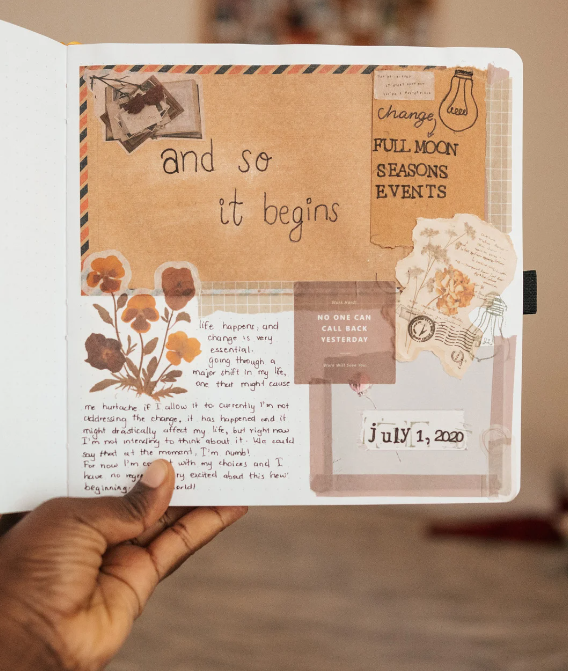 and so
it begins
change,
FULL MOON
SEASONS
EVENTS
NO ONE CAN
CALL BACK
YESTERDAY
life happens, and
change is very
essential.
going through a
major shift in my life,
one that might cause
me hurtache if I allow it to. currently I'm not
addressing the change, it has happened and it
might drastically affect my life, but right now
I'm not intending to think about it. We could
say that at the moment, I'm numb!
For now I'm with my choices and I
have no excited about this new
beginning world!
july 1, 2020